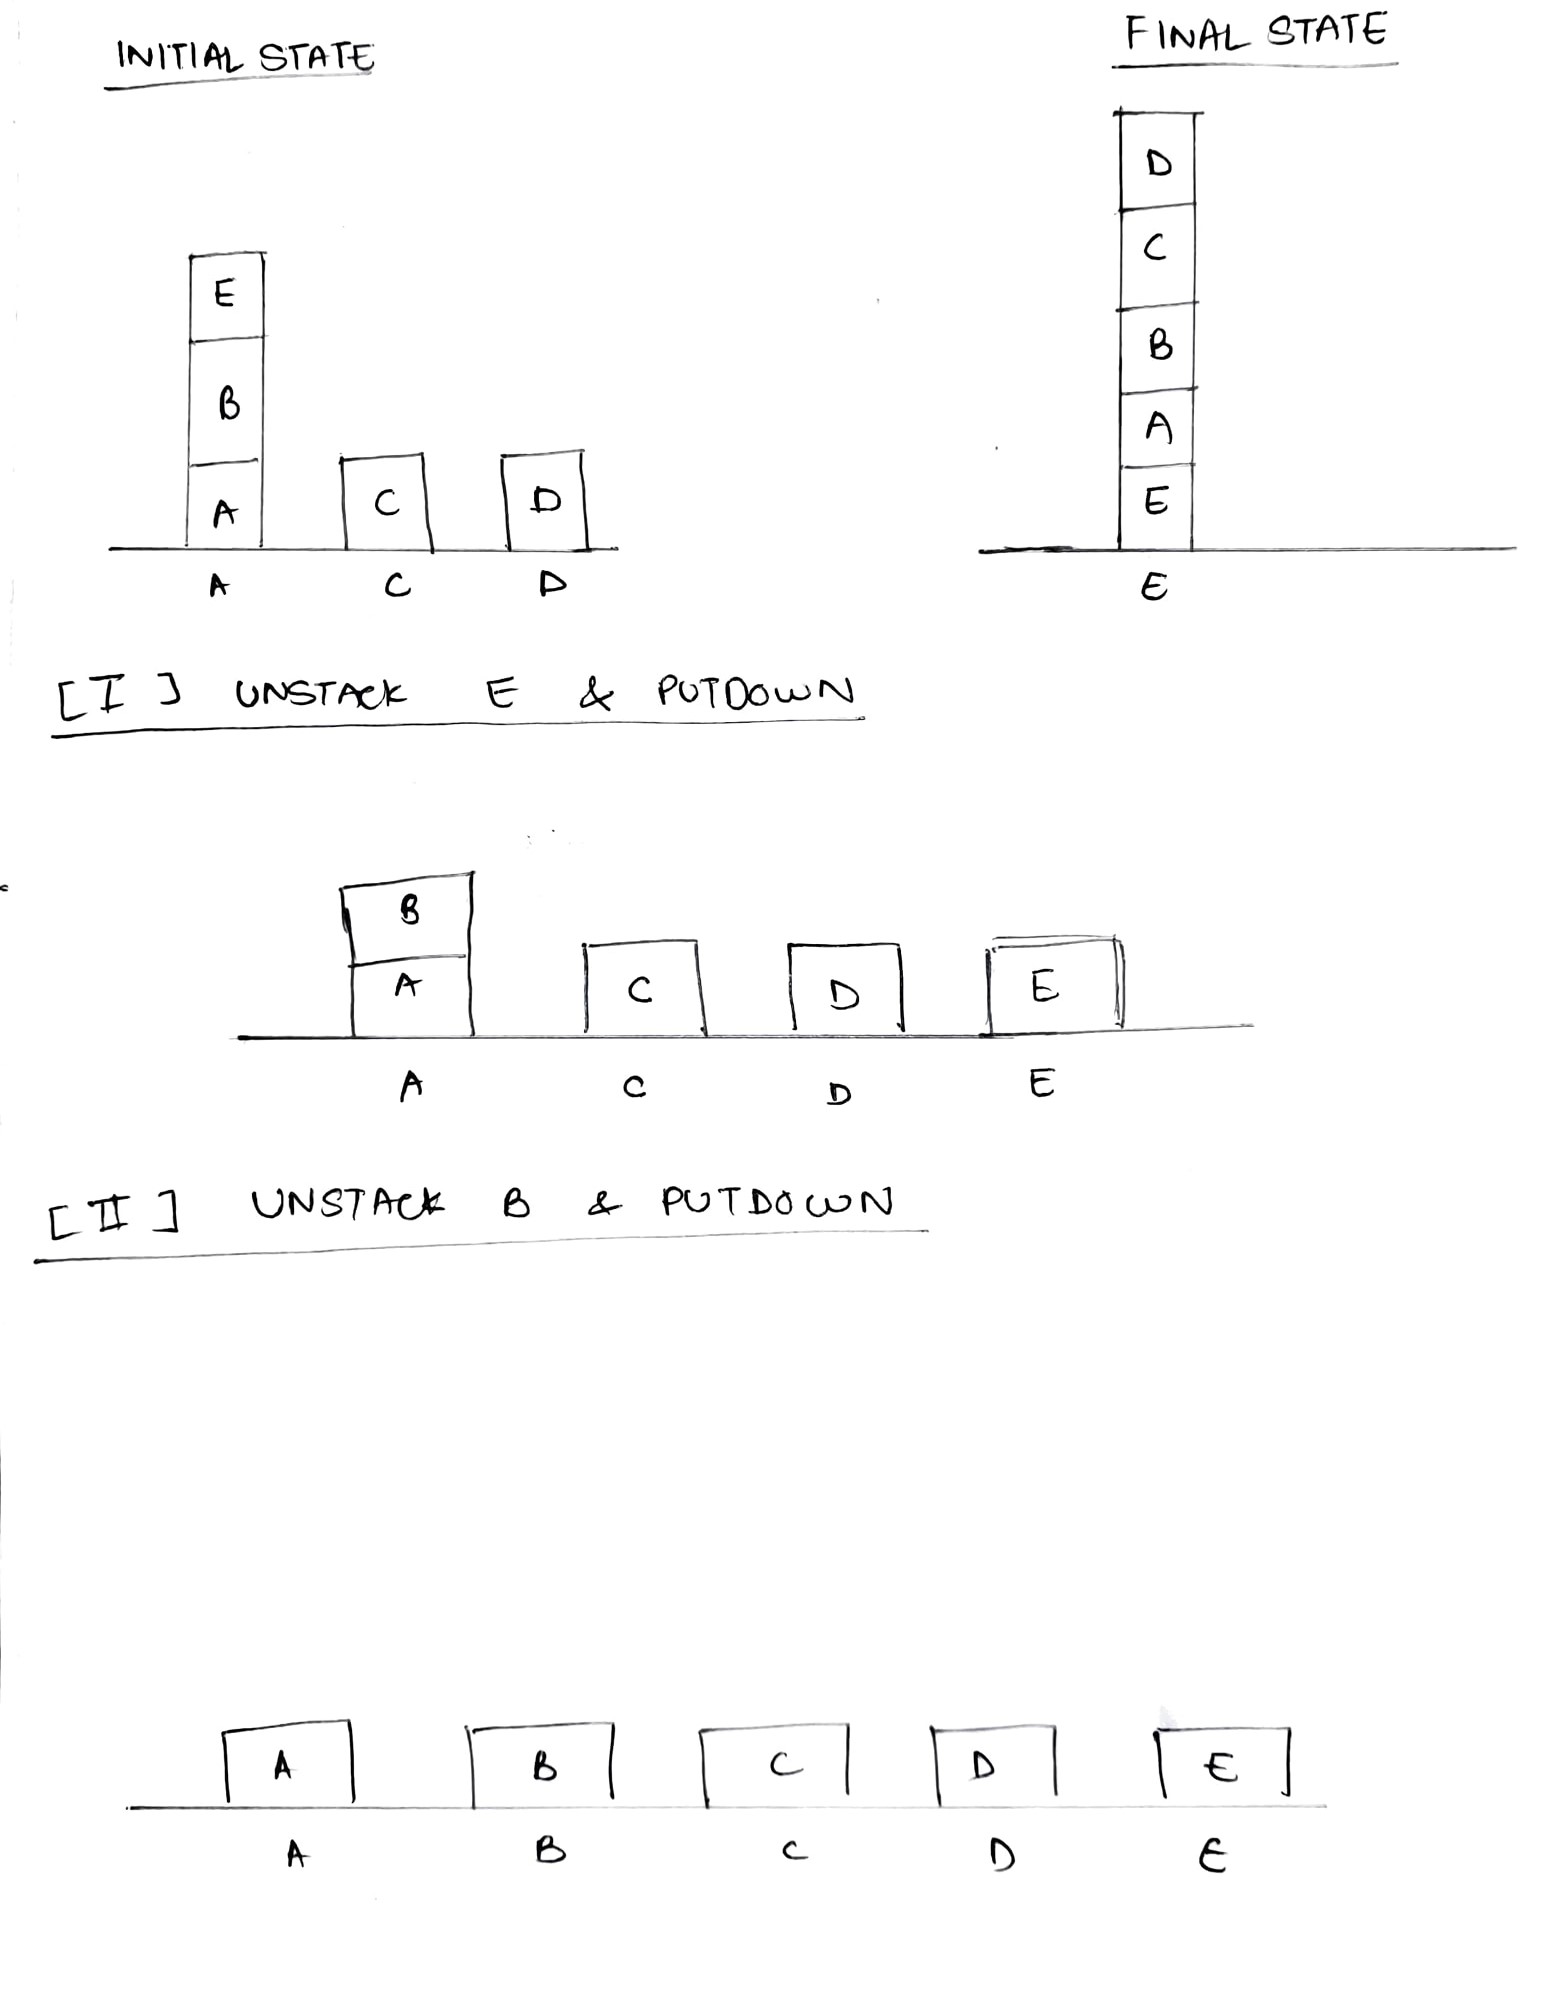 INITIAL STATE
FINAL STATE
E
B
A
C
D
A C D
D
C
B
A
E
E
[I] UNSTACK E & PUTDOWN
B
A
C
D
E
A C D E
[II] UNSTACK B & PUTDOWN
A B C D E
A B C D E